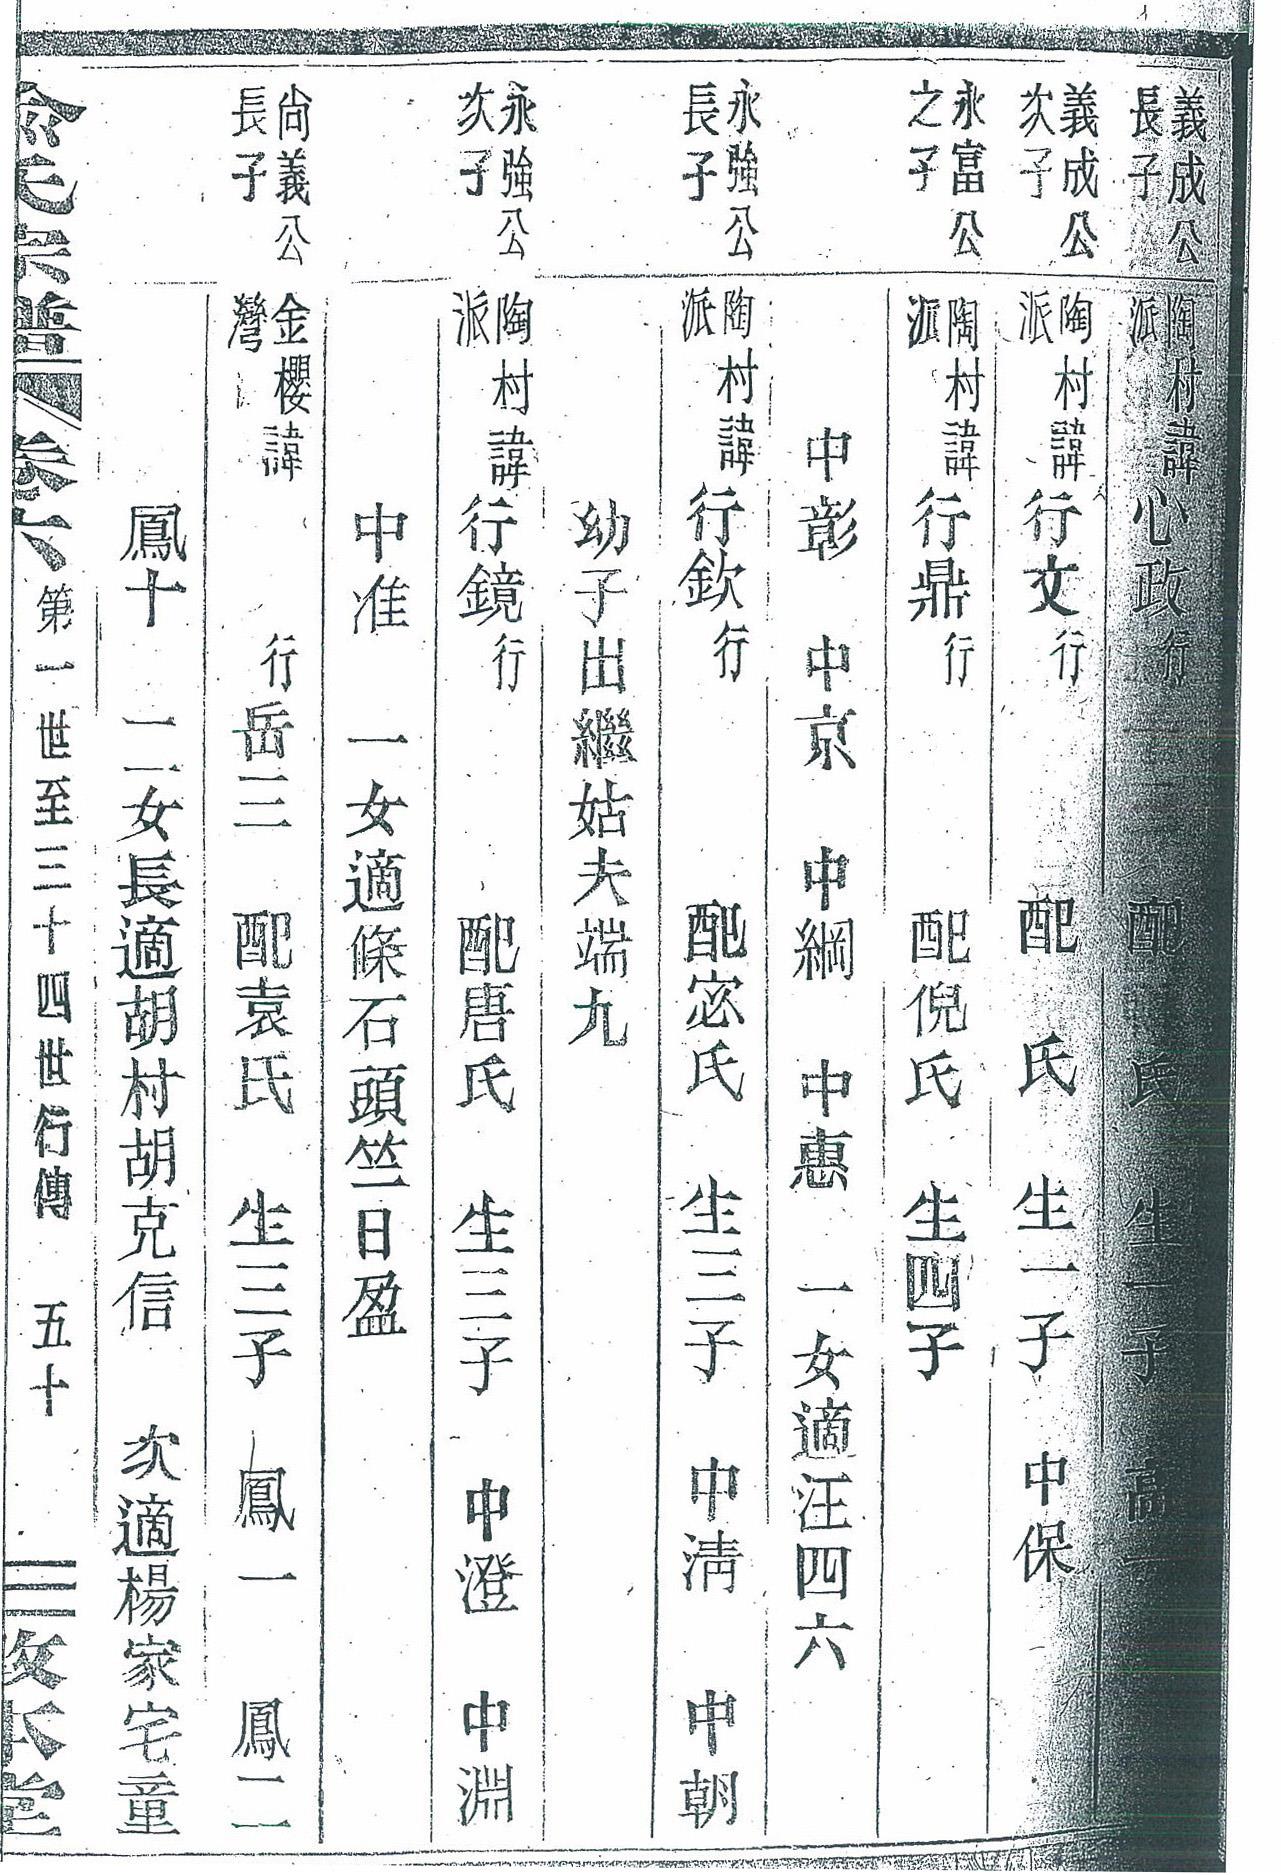 義成公長子 陶村派諱心政行 配 氏 生一子 高一
義成公次子 陶村派諱行文行 配 氏 生一子 中保
永富公之子 陶村派諱行鼎行 配倪氏 生四子
中彰 中京 中綱 中惠 一女適汪四六
永強公長子 陶村派諱行欽行 配宓氏 生三子 中淸 中朝
幼子出繼姑夫端九
永強公次子 陶村派諱行鏡行 配唐氏 生三子 中澄 中淵
中准 一女適條石頭竺日盈
尙義公長子 金櫻灣諱 行岳三 配袁氏 生三子 鳳一 鳳二
鳳十 二女長適胡村胡克信 次適楊家宅童
氏宗譜 卷六 第一世至三十四世行傳 五十 本堂